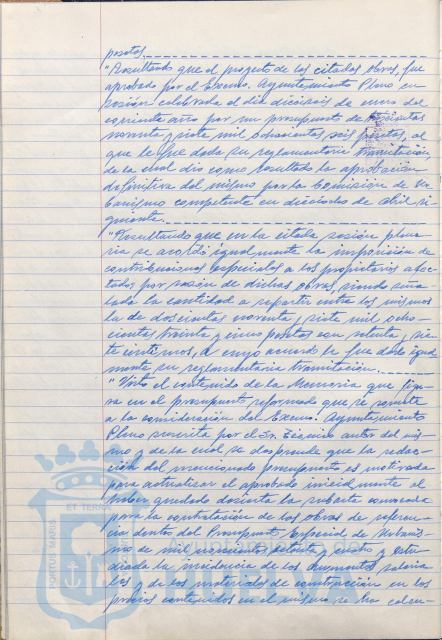 pesetas.
"Resultando que el proyecto de las citadas obras, fue
aprobado por el Excmo. Ayuntamiento Pleno en
sesión celebrada el día dieciseis de enero del
corriente año por un presupuesto de
noventa y siete mil ochocientas seis pesetas, al
que le fue dada su reglamentaria tramitación,
de la cual dio como resultado la aprobación
definitiva del mismo por la Comisión de Ur-
banismo competente en dieciocho de abril si-
guiente.
"Resultando que en la citada sesión plena-
ria se acordó igualmente la imposición de
contribuciones especiales a los propietarios afec-
tados por razón de dichas obras, siendo seña-
lada la cantidad a repartir entre los mismos
la de doscientas noventa y siete mil ocho-
cientas treinta y cinco pesetas con setenta y sie-
te céntimos, a cuyo acuerdo le fue dada igual-
mente su reglamentaria tramitación.
"Visto el contenido de la Memoria que figu-
ra en el presupuesto reformado que se somete
a la consideración del Excmo. Ayuntamiento
Pleno suscrita por el Sr. Técnico autor del mis-
mo y de la cual se desprende que la redac-
ción del mencionado presupuesto es motivada
para actualizar el aprobado inicialmente al
haber quedado desierta la subasta convocada
para la contratación de las obras de referen-
cia dentro del Presupuesto Especial de Urbanis-
mo de mil novecientos setenta y ocho y estu-
diada la incidencia de los aumentos salaria-
les y de los materiales de construcción en los
precios contenidos en el mismo se ha calcu-
PORTUS MARIS
ET TERRAE
HUELVA